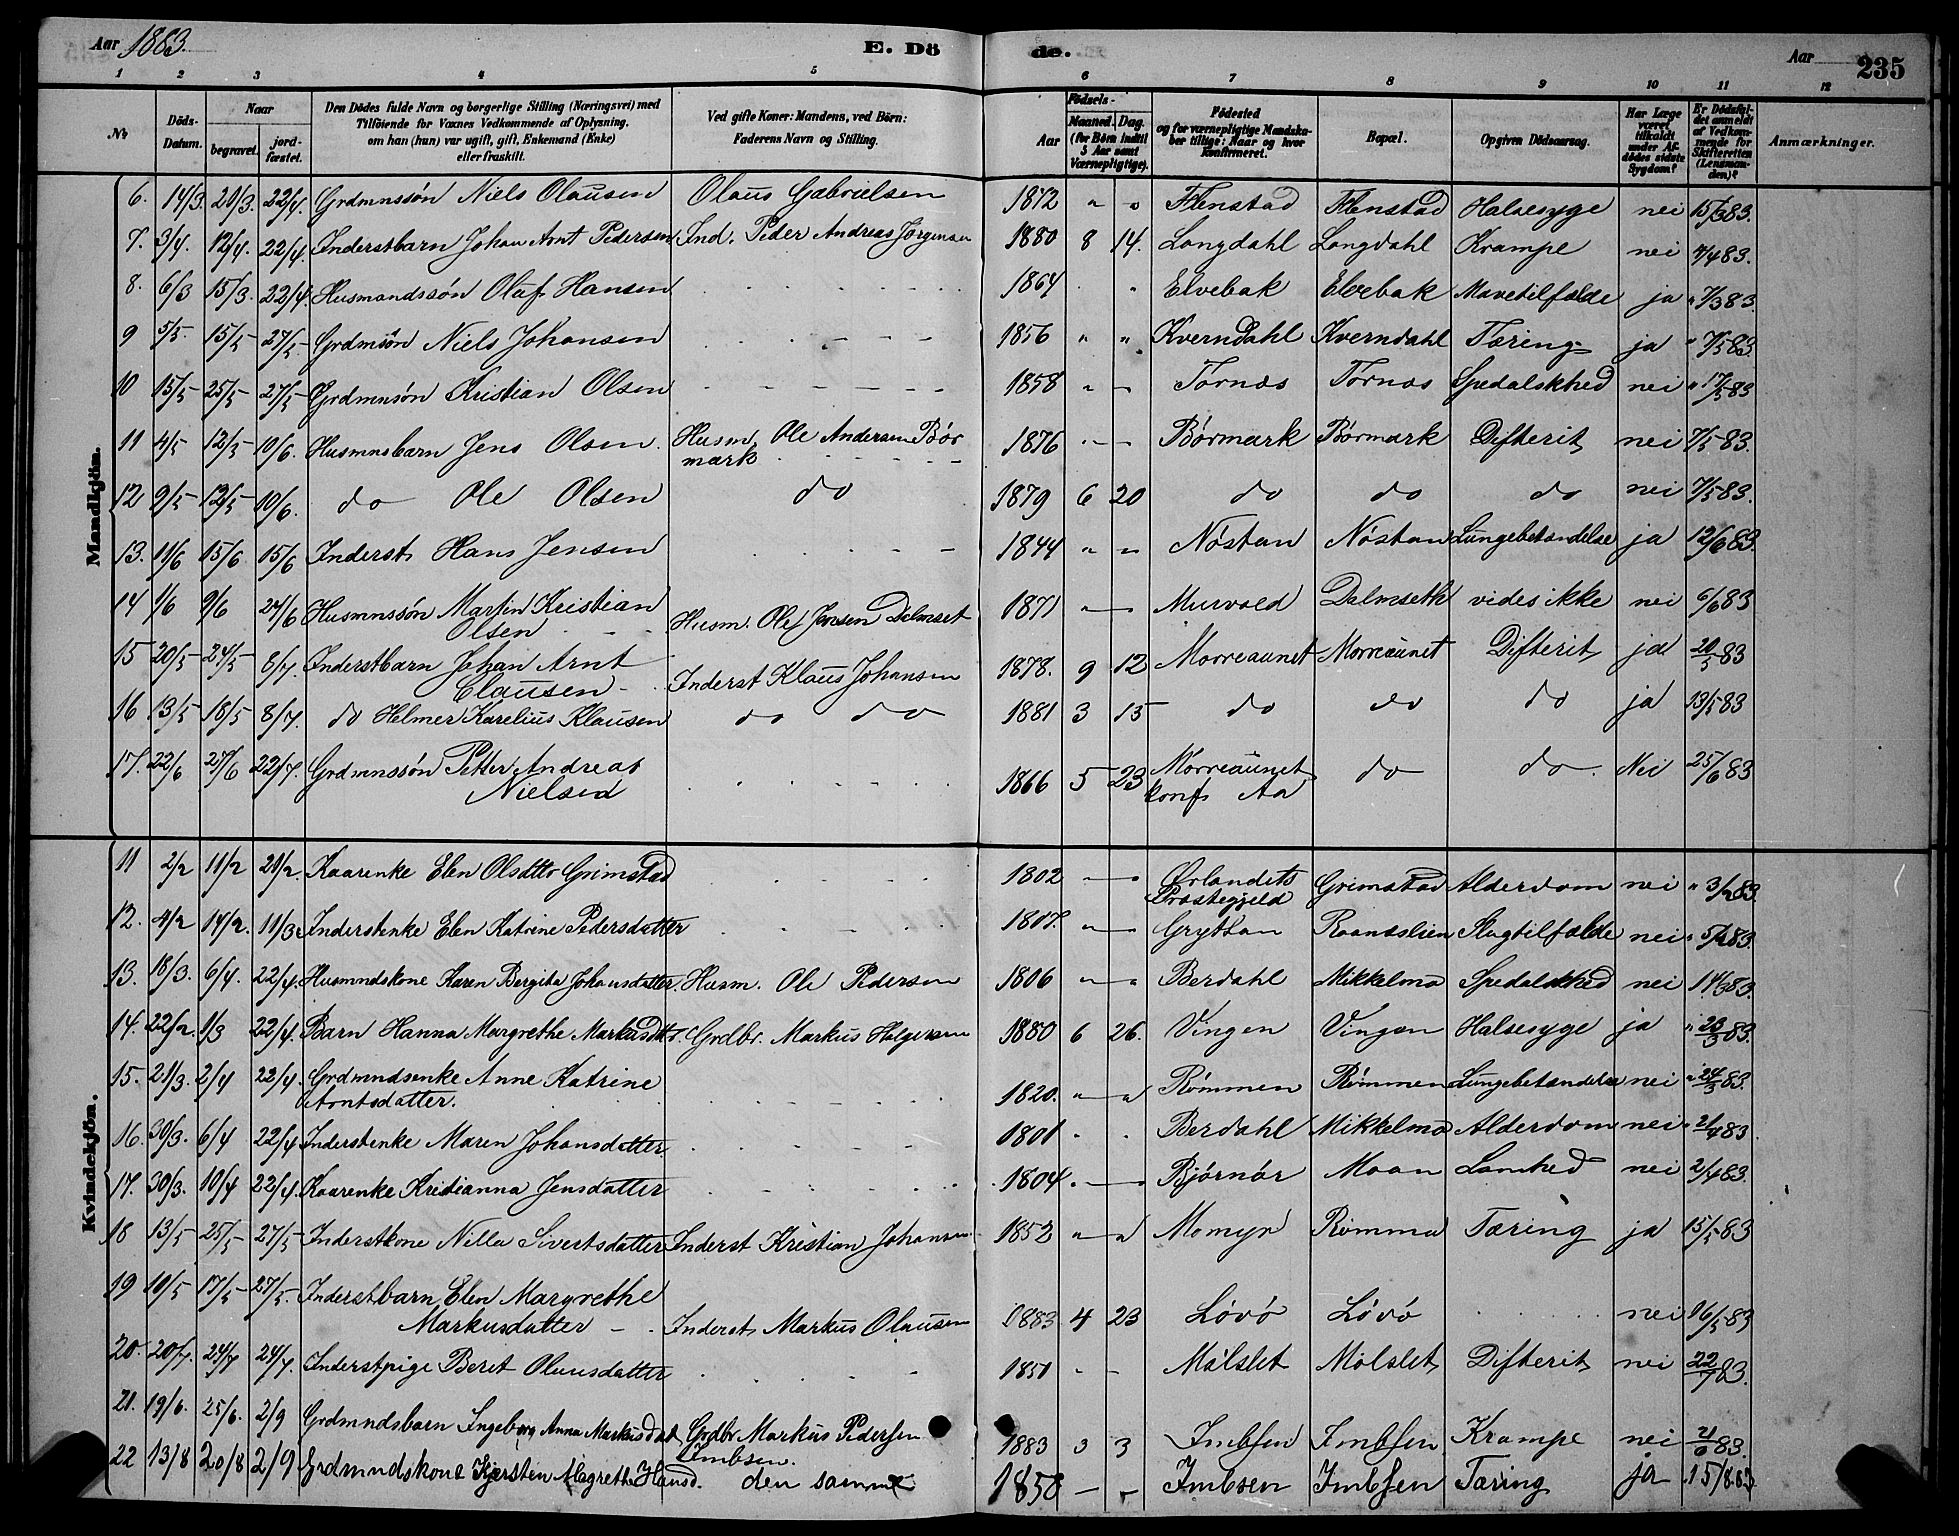 Aar 1883.
E. Dö
de.
Aar
235
1 2 3 4 5 6 7 8 9 10 11 12
No
Döds-Datum.
Naar
begravet.
jordfæstet.
Den Dödes fulde Navn og borgerlige Stilling (Næringsvei) med Tilföiende for Voxnes Vedkommende af Oplysning, om han (hun) var ugift, gift, Enkemand (Enke) eller fraskilt.
Ved gifte Koner: Mandens, ved Börn: Faderens Navn og Stilling.
Födsels-
Aar
Maaned. Dag.
(for Börn indtil 5 Aar samt Værnepligtige).
Födested og for værnepligtige Mandskaber tillige: Naar og hvor konfirmeret.
Bopæl.
Opgiven Dödsaarsag.
Har Læge været tilkaldt under Afdödes sidste Sygdom?
Er Dödsfaldet anmeldt af Vedkommende for Skifteretten (Lensmanden)?
Anmærkninger.
Mandkjön.
6. 14/3. 20/3. 22/4. Grdmnssøn Niels Olausen Olaus Gabrielsen 1872 " " Flenstad Flenstad Halsesyge nei 15/3 83.
7. 3/4. 12/4. 22/4. Inderstbarn Johan Arnt Pedersen Ind. Peder Andreas Jørgensen 1880 8 14. Langdahl Langdahl Krampe nei 7/4 83.
8. 6/3 15/3. 22/4. Husmandssøn Olaf Hansen 1864 " Elvebak Elvebak Mavetilfælde ja " 7/3 83.
9 5/5. 15/5 27/5. Grdmsøn Niels Johansen 1856 " " Kverndahl Kverndahl Tæring ja " 7/5 83
10 15/5 25/5 27/5 Grdmnsøn Kristian Olsen 1858 " Tørnæs Tørnæs Spedalskhed nei " 17/5 83
11 4/5 12/5 10/6. Husmnsbarn Jens Olsen. Husm. Ole Andersen Bør
mark 1876 Børmark Børmark Difterit nei 7/5 83.
12 9/5 12/5 10/6. do Ole Olsen do 1879 6 20 do do do nei 7/5 83.
13. 11/6 15/6 15/6 Inderst Hans Jensen 1844 " " Nøstan Nøstan Lungebetændelse ja 12/6 83.
14 1/6 9/6 24/6 Husmnssøn Martin Kristian
Olsen Husm. Ole Jensen Dalmset 1871 " Murvold Dalmseth vides ikke nei 6/6 83
15 20/5 24/5 8/7. Inderstbarn Johan Arnt
Clausen Inderst Klaus Johansen 1878. 9 12 Morreaunet Morreaunet Difterit ja 20/5 83
16 13/5 18/5 8/7. do Helmer Karelius Klausen do do 1881 3 15 do do do ja 13/5 83
17. 22/6 27/6 22/7. Grdmnssøn Petter Andreas
Nielsen 1866 5 23 Morreaunet
konf. Aa do do. Nei 25/6 83
Kvindekjön.
11 2/2 11/2 21/2. Kaarenke Elen Olsdtter Grimstad 1802 " Ørlandets
Præstegjeld Grimstad Alderdom nei " 3/2 83.
12. 4/2 14/2. 11/3 Inderstenke Elen Katrine Pedersdatter 1807. " Gryttan Raanaslien Slagtilfælde nei " 5/2 83.
13. 18/3. 6/4. 22/4. Husmndskone Karen Bergita Johansdatter. Husm. Ole Pedersen 1806 " " Berdahl Mikkelmo Spedalskhed nei 19/3 83.
14. 22/2. 1/3 22/4. Barn Hanna Margrethe Markusdtr. Grdbr. Markus Holgersen 1880 6 26. Vingen Vingen Halsesyge ja " 23/3 83.
15. 21/3. 2/4 22/4. Grdmndsenke Anne Katrine
Arntsdatter. 1820. " " Rømmen Rømmen Lungebetændelse nei " 24/3 83.
16. 30/3. 6/4 22/4 Inderstenke Maren Johansdatter 1801 " Berdahl Mikkelmo Alderdom nei " 2/4 83.
17. 30/3. 10/4 22/4. Kaarenke Kristianna Jensdatter 1804 " Bjørnør Moan Lamhed nei 2/4 83.
18 13/5 25/5 27/5 Inderstkone Nilla Sivertsdatter Inderst Kristian Johansen 1852 " " Momyr Rømma Tæring ja 15/5 83
19 10/5 17/5 27/5. Inderstbarn Elen Margrethe
Markusdatter Inderst Markus Olausen 1883 4 23 Løvø Løvø nei 16/5 83
20. 20/7. 24/7 24/7. Inderstpige Berit Olausdatter 1851 " Målslet Målslet Difterit nei 22/7 83.
21. 19/6. 25/6. 2/9 Grdmndsbarn Ingeborg Anna Markusdat. Grdbr. Markus Pedersen
Imbsen. 1883 3 3 Imbsen Imbsen Krampe nei 21/6 83.
22 13/8 20/8 2/9 Grdmndskone Kjersten Magrethe Hansd. den samme 1850 Imbsen Imbsen Tæring ja 15/8 83